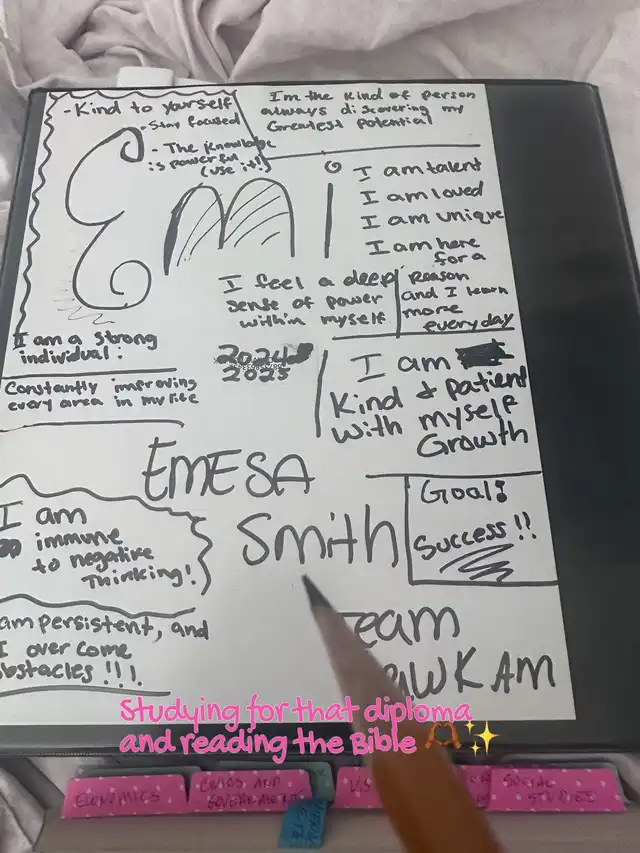 - Kind to yourself
- Stay focused
- The knowledge
is powerful
(use it!)
Im the kind of person
always discovering my
Greatest potential
Em
I am talent
I am loved
I am unique
I am here
for a
Reason
and I learn
more
everyday
I feel a deep
sense of power
within myself
I am a strong
individual:
Constantly improving
every area in my life
2024
2025
I am
Kind & patient
with myself
Growth
EMESA
Smith
Goal:
Success!!
I am
immune
to negative
Thinking!
am persistent, and
I over come
obstacles!!!.
Team
KAM
Studying for that diploma
and reading the Bible 🫶🏾✨
ECONOMICS
CIVICS AND
GOVERNMENT
U.S
SOCIAL
STUDIES